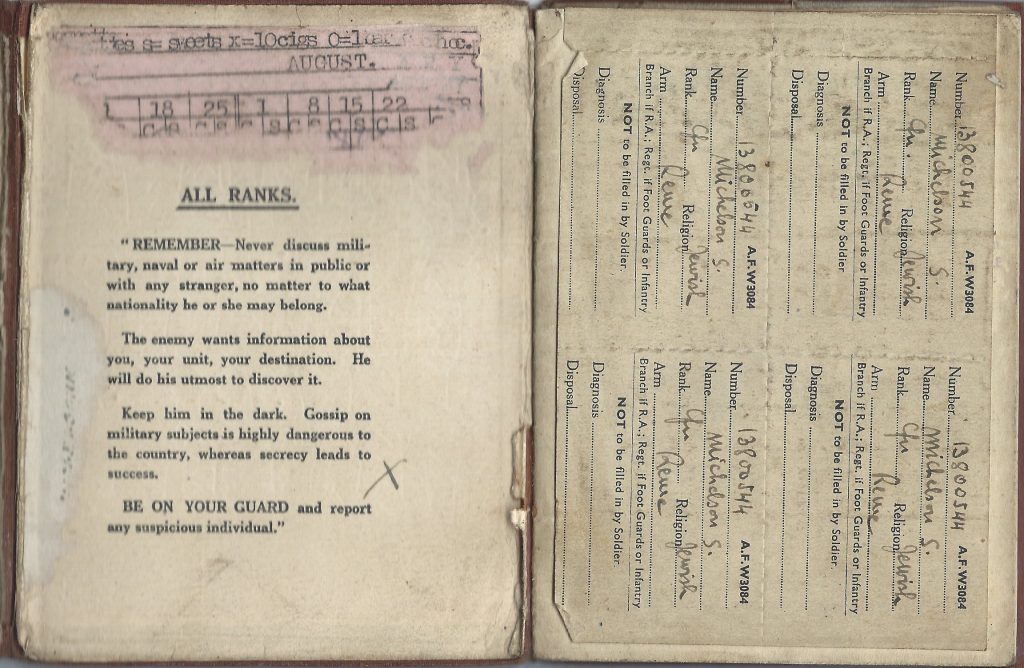 s= sweets x=10cigs 0=1
AUGUST.
18 25 1 8 15 22
C S C S S C C S C S
ALL RANKS.
"REMEMBER—Never discuss mili-
tary, naval or air matters in public or
with any stranger, no matter to what
nationality he or she may belong.
The enemy wants information about
you, your unit, your destination. He
will do his utmost to discover it.
Keep him in the dark. Gossip on
military subjects is highly dangerous to
the country, whereas secrecy leads to
success.
BE ON YOUR GUARD and report
any suspicious individual."
X
Number 13800544 A.F.W3084
Name Michelson S.
Rank Cfn. Religion Jewish
Arm Reme
Branch if R.A.; Regt. if Foot Guards or Infantry
NOT to be filled in by Soldier
Diagnosis
Disposal
Number 13800544 A.F.W3084
Name Michelson S.
Rank Cfn Religion Jewish
Arm Reme
Branch if R.A.; Regt. if Foot Guards or Infantry
NOT to be filled in by Soldier.
Diagnosis
Disposal
Number 13800544 A.F.W3084
Name Michelson S.
Rank Cfn Religion Jewish
Arm Reme
Branch if R.A.; Regt. if Foot Guards or Infantry
NOT to be filled in by Soldier.
Diagnosis
Disposal
Number 13800544 A.F.W3084
Name Michelson S.
Rank Cfn Religion Jewish
Arm Reme
Branch if R.A.; Regt. if Foot Guards or Infantry
NOT to be filled in by Soldier.
Diagnosis
Disposal